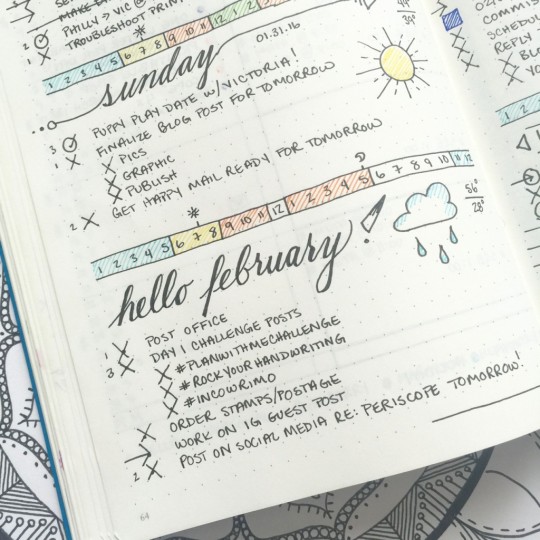 MAKE
PHILLY > VIC @
TROUBLESHOOT PRINT
1 2 3 4 5 6 7 8 9 10 11 12 1 2
sunday
01.31.16
3 PUPPY PLAY DATE W/VICTORIA!
1 FINALIZE BLOG POST FOR TOMORROW
PICS
GRAPHIC
PUBLISH
2 GET HAPPY MAIL READY FOR TOMORROW
1 2 3 4 5 6 7 8 9 10 11 12 1 2 3 4 5 6 7 8 9 10 11 12
hello february!
56°
28°
1 POST OFFICE
3 DAY 1 CHALLENGE POSTS
#PLANWITHMECHALLENGE
#ROCKYOURHANDWRITING
#INCOWRIMO
ORDER STAMPS/POSTAGE
WORK ON IG GUEST POST
2 POST ON SOCIAL MEDIA RE: PERISCOPE TOMORROW!
64
COMMIS
SCHEDUL
REPLY
BLO
YO
1 2